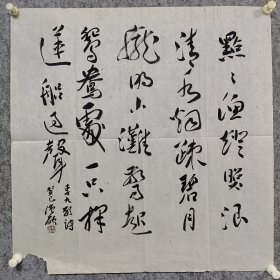 點々漁燈照浪
清水烟疏碧月
朧明小灘驚起
鴛鴦處一只採
蓮船過聲
李九齡詩